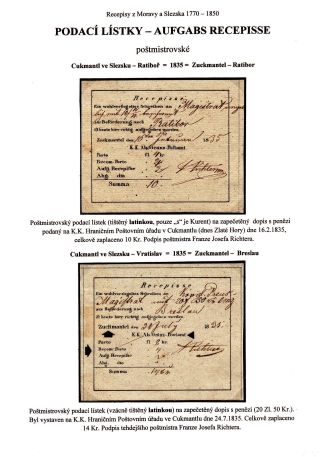 Recepisy z Moravy a Slezska 1770 – 1850
PODACÍ LÍSTKY – AUFGABS RECEPISSE
poštmistrovské
Cukmantl ve Slezsku – Ratiboř = 1835 = Zuckmantel – Ratibor
Recepisse
Ein wohlversiegeltes Schreiben an Magistrat
zur Beförderung nach Ratibor
ist heute hier richtig aufgegeben worden.
Zuckmantel den 1835
K.K. Abs. Gränz-Postamt
Porto
Recom. Porto
Aufg. Recepisse
Summa 10.
Poštmistrovský podací lístek (tištěný latinkou, pouze „s“ je Kurent) na zapečetěný dopis s penězi
podaný na K.K. Hraničním Poštovním úřadu v Cukmantlu (dnes Zlaté Hory) dne 16.2.1835,
celkově zaplaceno 10 Kr. Podpis poštmistra Franze Josefa Richtera.
Cukmantl ve Slezsku – Vratislav = 1835 = Zuckmantel – Breslau
Recepisse
Ein wohlversiegeltes Schreiben an
Magistrat
zur Beförderung nach Breslau
ist heute hier richtig aufgegeben worden.
Zuckmantel den 24 July 1835.
K.K. Abs. Gränz-Postamt
Porto
Recom. Porto
Aufg. Recepisse
Summa
Poštmistrovský podací lístek (vzácně tištěný latinkou) na zapečetěný dopis s penězi (20 Zl. 50 Kr.).
Byl vystaven na K.K. Hraničním Poštovním úřadu ve Cukmantlu dne 24.7.1835. Celkově zaplaceno
14 Kr. Podpis tehdejšího poštmistra Franze Josefa Richtera.